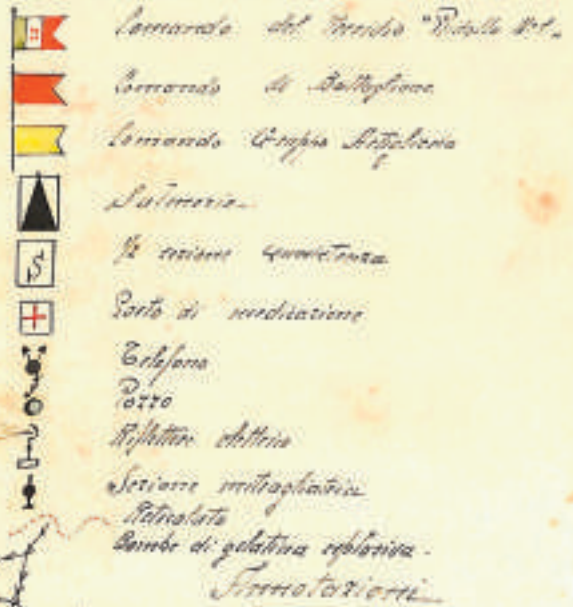 Comando del Presidio "Ridotta N° 1"
Comando di Battaglione
Comando Gruppo Artiglieria
Salmerie
S
½ sezione sussistenza
Posto di medicazione
Telefono
Pozzo
Riflettore elettrico
Sezione mitragliatrici
Reticolato
Bombe di gelatina esplosiva.
Annotazioni